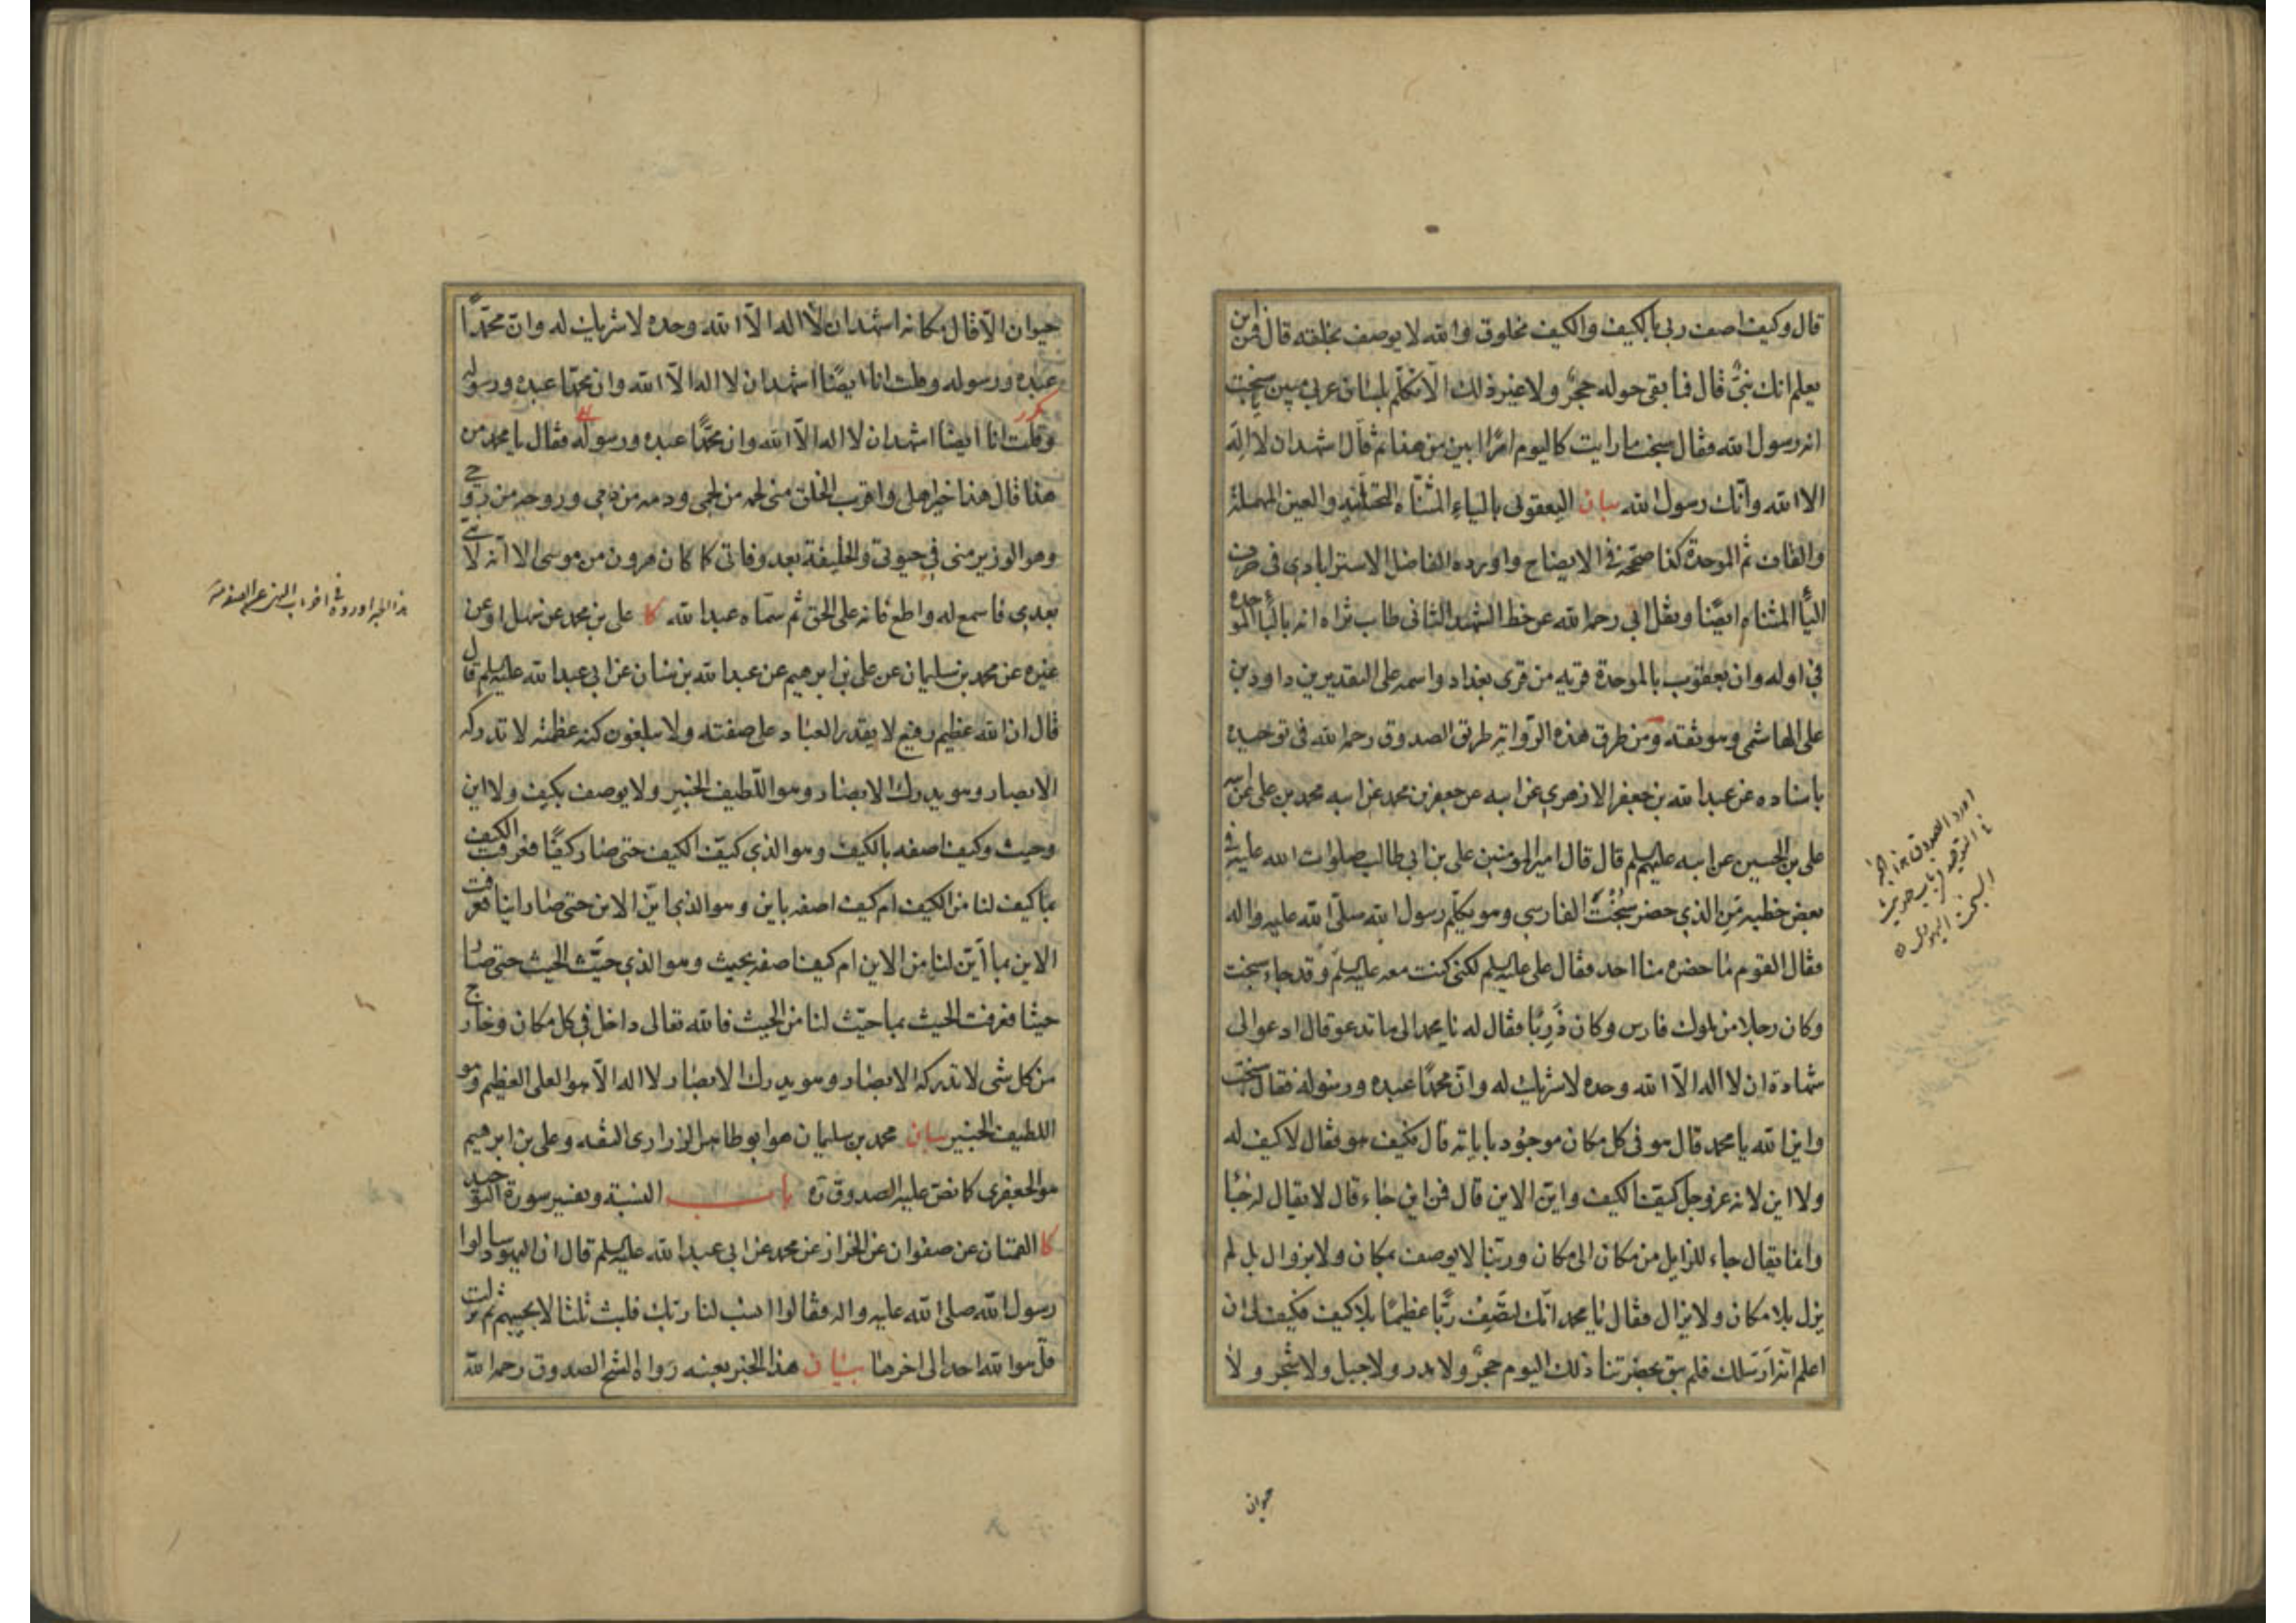 قال وكيف اصف ربي بالكيف والكيف مخلوق والله لا يوصف بخلقه قال فمن اين
يعلم انك نبيّ قال فما بقى حوله حجرٌ ولا غير ذلك الّا تكلّم بلسان عربي مبين يا سبخت
انه رسول الله فقال سبخت ما رايت كاليوم امرًا ابين من هذا ثم قال اشهد ان لا اله
الا الله وانّك رسول الله بيان اليعقوبى بالياء المثنّاة التحتانيه والعين المهملة
والقاف ثم الموحدة كذا صحّحه فى الايضاح واورده الفاضل الاسترابادى فى حرف
الياء المثناه ايضًا ونقل ابى رحمه الله عن خط الشهيد الثانى طاب ثراه انه بالباء الموحدة
في اوله وان بعقوب بالموحدة قريه من قرى بغداد واسمه على التقديرين داود بن
على الهاشمى وهو ثقته ومن طرق هذه الرّواية طريق الصدوق رحمه الله فى توحيده
باسناده عن عبد الله بن جعفر الازهرى عن ابيه عن جعفر بن محمد عن ابيه محمد بن على عن ابيه
على بن الحسين عن ابيه عليهم السلم قال قال امير المومنين على بن ابى طالب صلوات الله عليه في
بعض خطبه من الذي حضر سُبُخْتَ الفارسى وهو يكلّم رسول الله صلّى الله عليه واله
فقال القوم ما حضره منا احد فقال على عليه السلم لكنى كنت معه عليه السلم وقد جاءه سبخت
وكان رجلا من ملوك فارس وكان ذَرِبًا فقال له يا محمد الى ما تدعو قال ادعو الى
شهادة ان لا اله الّا الله وحده لا شريك له وانّ محمدًا عبده ورسوله فقال سبخت
واين الله يا محمد قال هو فى كل مكان موجود باياته قال فكيف هو فقال لا كيف له
ولا اين لانه عز وجل كيّف الكيف واين الاين قال فمن اين جاء قال لا يقال له جاء
وانما يقال جاء للزايل من مكان الى مكان وربّنا لا يوصف بمكان ولا بزوال بل لم
يزل بلا مكان ولا يزال فقال يا محمد انّك لتصف ربًّا عظيمًا بلا كيف فكيف لى ان
اعلم انّه ارسلك فلم يبق بحضرتنا ذلك اليوم حجرٌ ولا مدر ولا جبل ولا شجر ولا
حيوان
اورد الصدوق هذا الخبر
فى التوحيد فى باب حديث
سبخت اليهودى
حيوان الّا قال مكانه اشهد ان لا اله الّا الله وحده لا شريك له وانّ محمّدًا
عبده ورسوله وقلت انا ايضًا اشهد ان لا اله الّا الله وان محمدًا عبده ورسوله
مكرر
وقلت انا ايضا اشهد ان لا اله الّا الله وان محمّدًا عبده ورسوله فقال يا محمد من
هذا قال هذا خير اهلى واقرب الخلق منى لحمه من لحمى ودمه من دمى وروحه من روحى
وهو الوزير منى في حيوتى والخليفة بعد وفاتى كما كان هرون من موسى الا انّه لا نبى
بعدى فاسمع له واطع فانه على الحق ثم سمّاه عبد الله كا على بن محمد عن سهل او عن
غيره عن محمد بن سليمان عن على بن ابرهيم عن عبد الله بن سنان عن ابى عبد الله عليه السلم قال
قال ان الله عظيم رفيع لا يقدر العباد على صفته ولا يبلغون كنه عظمته لا تدركه
الابصار وهو يدرك الابصار وهو اللّطيف الخبير ولا يوصف بكيف ولا اين
وحيث وكيف اصفه بالكيف وهو الذي كيّف الكيف حتى صار كيفًا فعرفت الكيف
بما كيف لنا من الكيف ام كيف اصفه باين وهو الذي ايّن الاين حتى صار اينا فعرفت
الاين بما ايّن لنا من الاين ام كيف اصفه بحيث وهو الذي حيَّث الحيث حتى صار
حيثا فعرفت الحيث بما حيّث لنا من الحيث فالله تعالى داخل في كل مكان وخارج
من كل شى لا تدركه الابصار وهو يدرك الابصار لا اله الّا هو العلى العظيم وهو
اللطيف الخبير بيان محمد بن سليمان هو ابو طاهر الزرارى الثقه وعلى بن ابرهيم
هو الجعفرى كما نصّ عليه الصدوق ره باب النسبة وتفسير سورة التوحيد
كا القمّيان عن صفوان عن الخزاز عن محمد عن ابى عبد الله عليه السلم قال ان اليهود سالوا
رسول الله صلى الله عليه واله فقالوا انسب لنا ربّك فلبث ثلثا لا يجيبهم ثم نزلت
قل هو الله احد الى اخرها بيان هذا الخبر بعينه رواه الشيخ الصدوق رحمه الله
هذا الخبر اورده فى اخر باب النهى عن الصفة